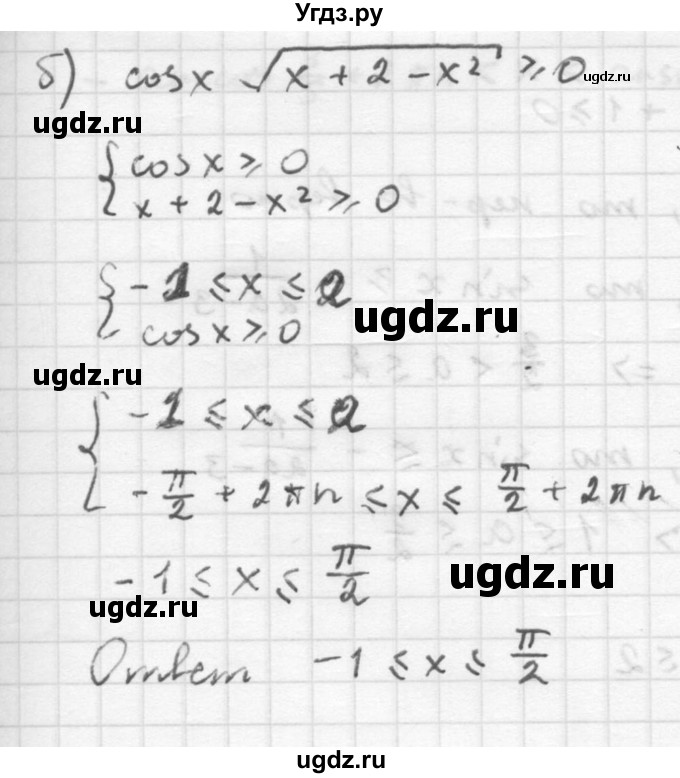 Угдз.ру
б) cos x √(x + 2 - x²) ≥ 0
ugdz.ru
ugdz.ru
{ cos x ≥ 0
x + 2 - x² ≥ 0
{ -1 ≤ x ≤ 2
cos x ≥ 0
ugdz.ru
ugdz.ru
{ -1 ≤ x ≤ 2
-π/2 + 2πn ≤ x ≤ π/2 + 2πn
-1 ≤ x ≤ π/2
ugdz.ru
Ответ -1 ≤ x ≤ π/2
ugdz.ru